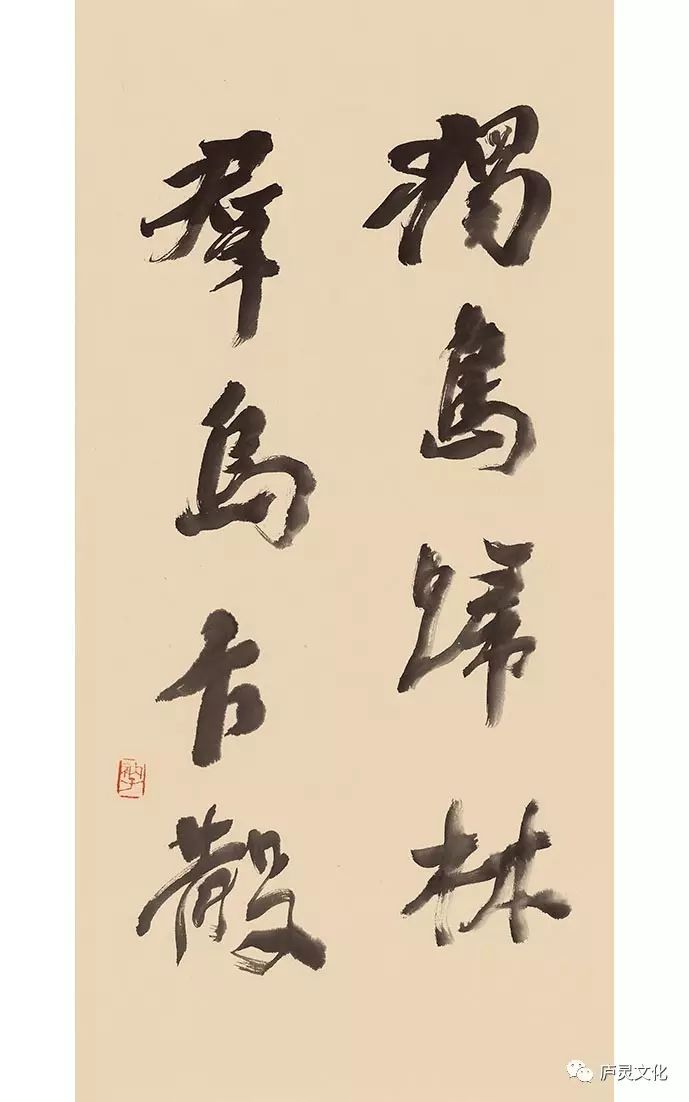 獨鳥歸林
羣鳥方散
庐灵文化